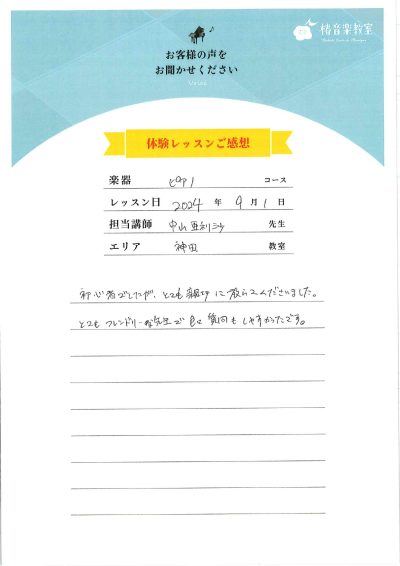 椿音楽教室
お客様の声を
お聞かせください
体験レッスンご感想
楽器 ピアノ コース
レッスン日 2024 年 9 月 1 日
担当講師 中山 亜利沙 先生
エリア 神田 教室
初心者でしたが、とても親切に教えてくださいました。
とてもフレンドリーな先生で色々質問もしやすかったです。